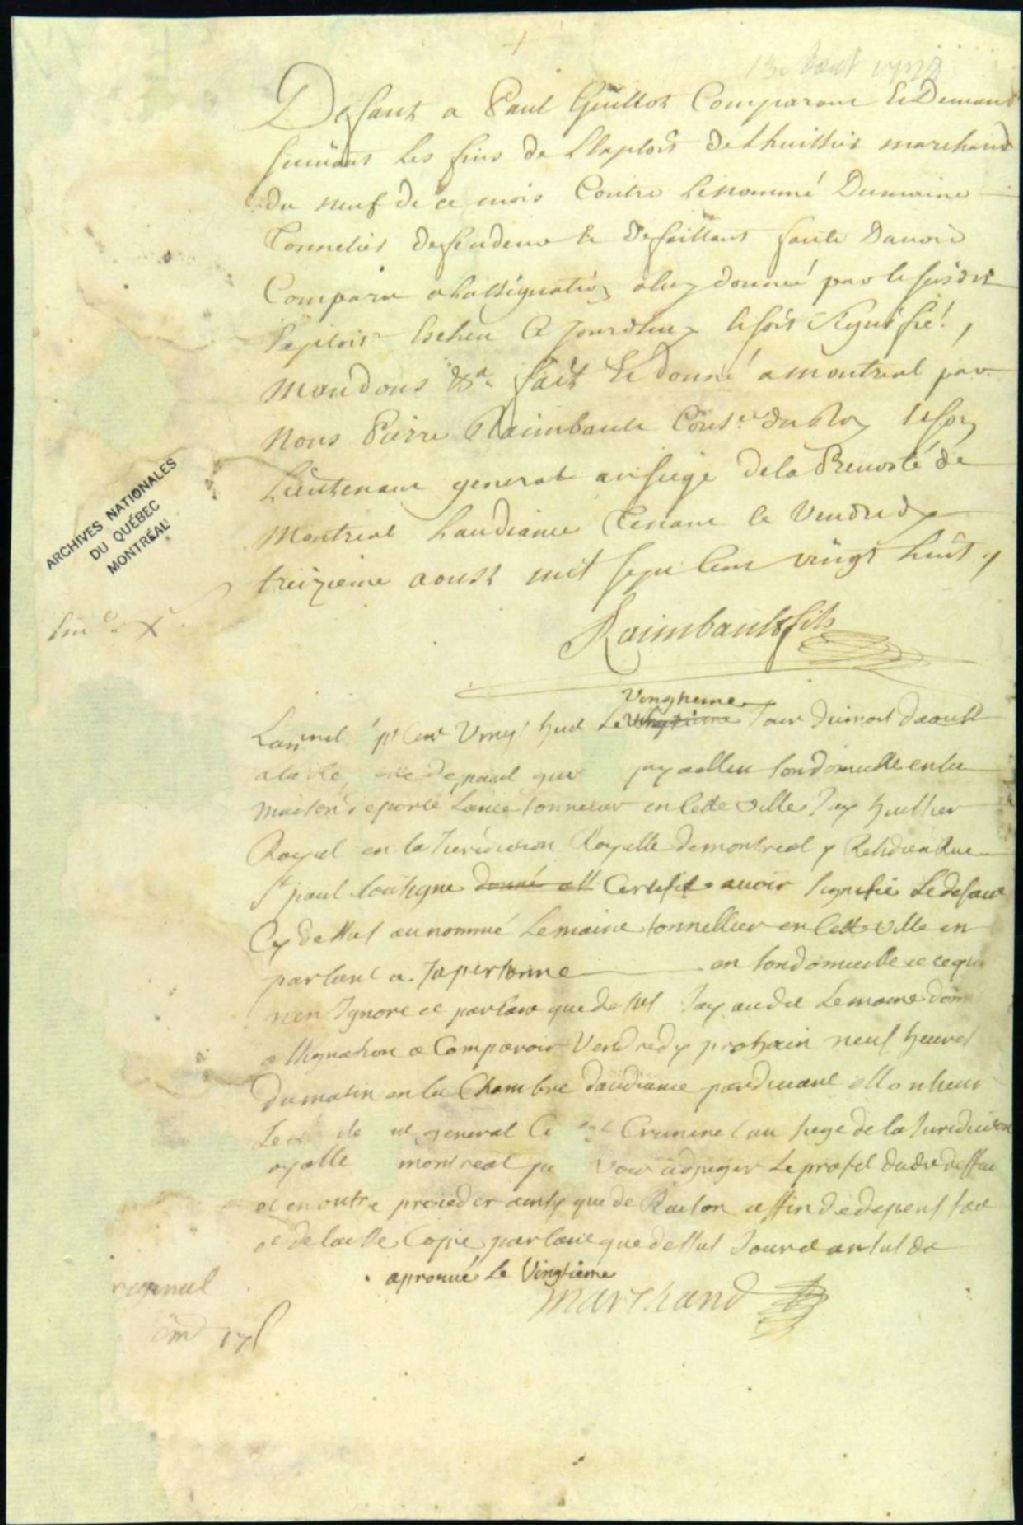 13 Aout 1728
Deffaut a Paul Guillot Comparant Et Demand
suivant Les fins de L'Exploit de Lhuissier marchand
du neuf de ce mois Contre Le nommé Dumaine
Tonnelier deffendeur Et Deffaillant faute Davoir
Comparu a Lassignation a luy donnée par le susdit
Exploit Escheu Ce Jourdhuy Et soit Signifié,
Mandons &a. fait Et donné a montreal par
Nous Pierre Raimbault Consr. du Roy Et son
Lieutenant general au siege de la Prevosté de
Montreal Laudiance Tenant le Vendredy
treizieme aoust mil sept Cent vingt huit
ARCHIVES NATIONALES
DU QUÉBEC
MONTRÉAL
Raimbault fils
Vingtieme
Lan mil spt Cent Vingt huit Le Jour du mois daoust
de paul gui jay allu son domicille en la
maison de pierre tonnelier en Cette ville Jay huissier
Royal en la Jurédicion Royalle de montreal y Residen Rue
St paul soutsigne donné att Certifie avoir signifie Le defaut
Cy dessus au nommé Lemaine tonnellier en Cette ville en
parlant a sa personne en son domicille a ce qu
nen Ignore et parlant que dessus Jay audit Lemaine donn
assignation a Comparoir Vendredy prochain neuf heures
du matin en la Chambre daudiance pardevant Monsieur
Le general Ci Criminel au siege de la Juridicion
oyalle montreal pr Voir adjuger Le profit dudit deffau
et en outre proceder ainsy que de Raison affin de depens fait
et delaisse Copie parlant que dessus Jour et an susdit
aprouué Le Vingtieme
Marchand